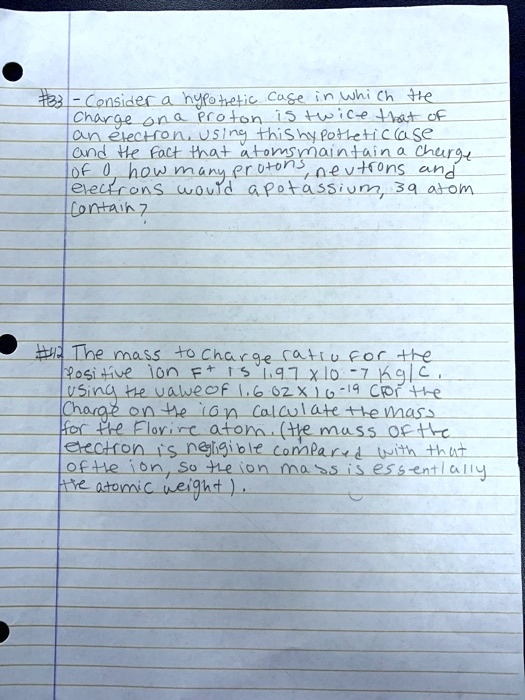 #33 - Consider a hypothetic case in which the
Charge on a proton is twice that of
an electron. using this hypothetic case
and the fact that atoms maintain a charge
of 0, how many protons, neutrons and
electrons would a potassium, 39 atom
contain?
#42 The mass to charge ratio for the
positive ion F+ is 1.97 x 10 -7 kg/C.
Using the value of 1.602 x 10 -19 C for the
Charge on the ion calculate the mass
for the Florine atom. (the mass of the
electron is negligible compared with that
of the ion, so the ion mass is essentially
the atomic weight).